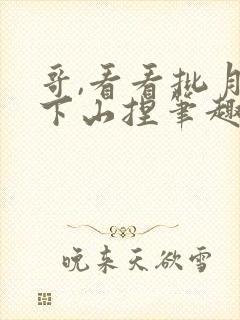 哥,看看批月
下山捏笔趣
晚来天欲雪